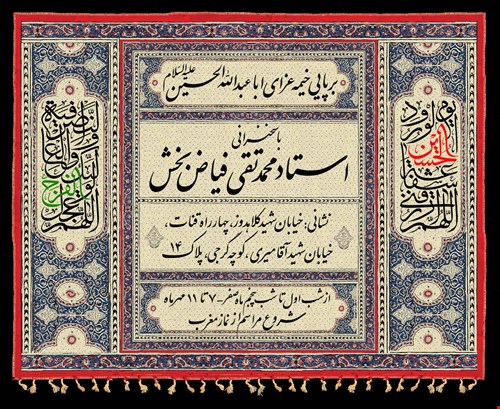 برپایی خیمه عزای اباعبدالله الحسین علیه السلام
باسخنرانی
استاد محمد تقی فیاض بخش
نشانی: خیابان شهید کلاهدوز، چهارراه قنات،
خیابان شهید آقامیری، کوچه کرجی، پلاک ۱۴
از شب اول تا شب پنجم ماه صفر - ۷ تا ۱۱ مهرماه
شروع مراسم از نماز مغرب
اللهم ارزقنی شفاعة الحسین یوم الورود
اللهم عجل لولیک الفرج